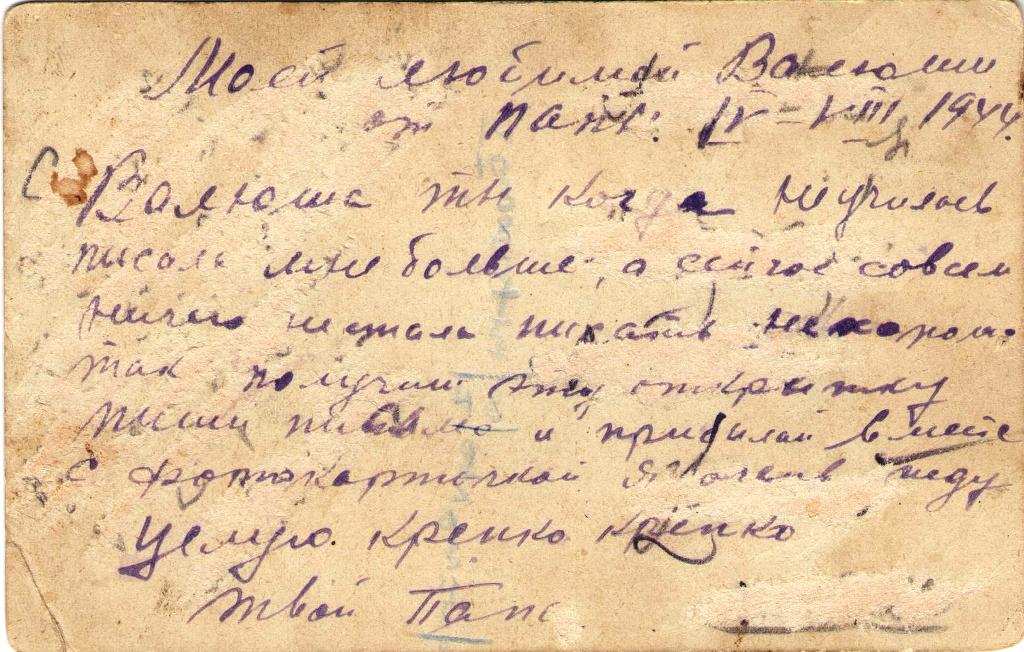 Моей любимой Валюши
от папы. IV–VIII 1944.
Валюша ты когда неучилась
писала мне больше, а сейчас совсем
ничего нестала писать нехорош.
так получиш эту открытку
пиши письмо и присилай вместе
с фотокарточкой я очень жду
целую крепко крепко
твой Папа